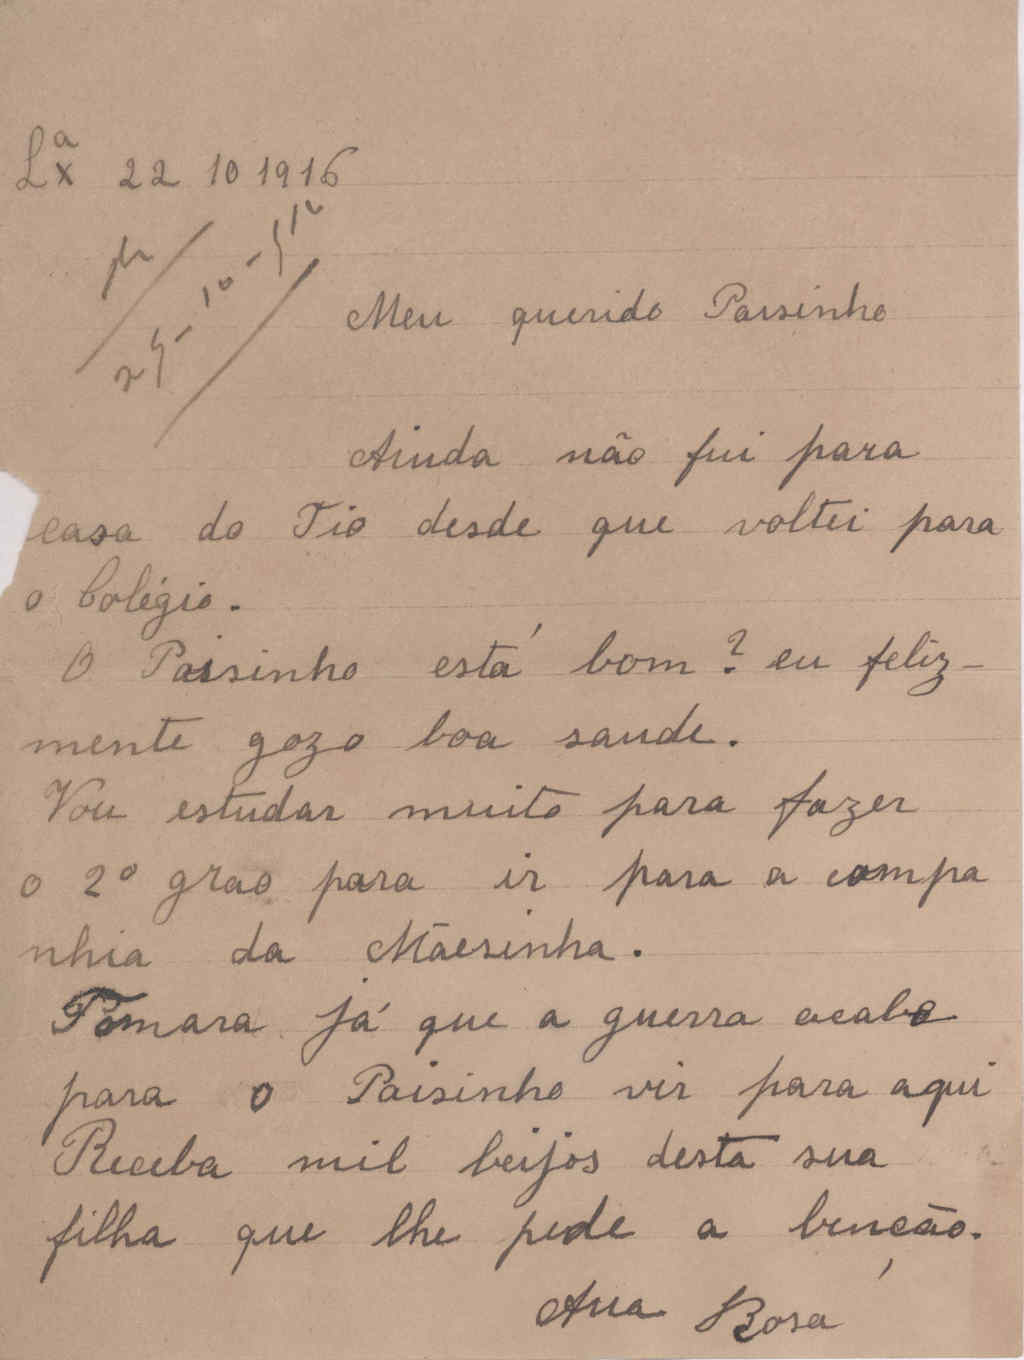 Lxª 22 10 1916
Meu querido Paisinho
Ainda não fui para
casa do Tio desde que voltei para
o Colégio.
O Paisinho está bom? eu feliz-
mente gozo boa saude.
Vou estudar muito para fazer
o 2º grao para ir para a compa
nhia da Mãesinha.
Tomara já que a guerra acabe
para o Paisinho vir para aqui
Receba mil beijos desta sua
filha que lhe pede a benção.
Ana Rosa